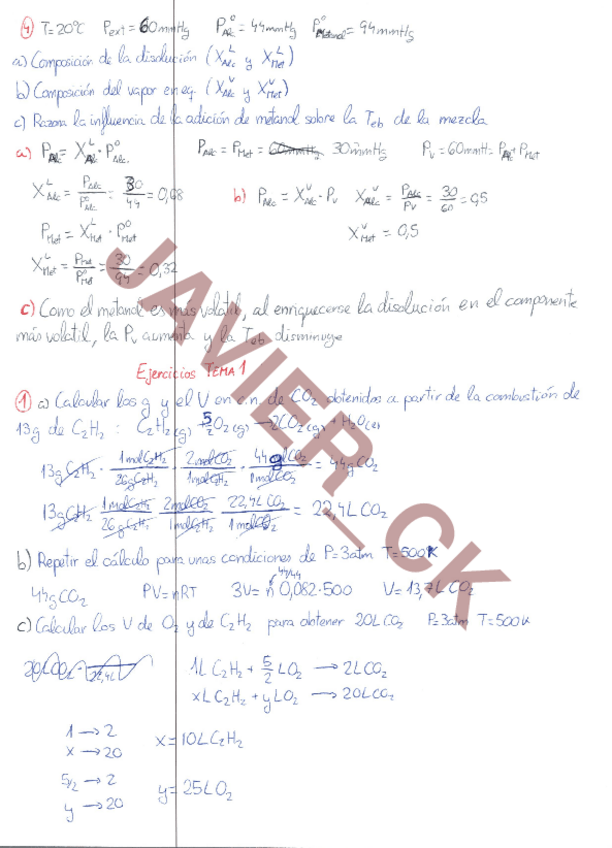 ④ T=20ºC Pext=60mmHg P°Alc=44mmHg P°Metanol=94mmHg
a) Composición de la disolución (X^L_Alc y X^L_Met)
b) Composición del vapor en eq. (X^V_Alc y X^V_Met)
c) Razona la influencia de la adición de metanol sobre la Teb de la mezcla
a) PAlc = X^L_Alc · P°Alc. PAlc = PMet = 30mmHg Pv = 60mmHg = PAlc + PMet
X^L_Alc = PAlc/P°Alc = 30/44 = 0,68 b) PAlc = X^V_Alc · Pv X^V_Alc = PAlc/Pv = 30/60 = 0,5
PMet = X^L_Met · P°Met X^V_Met = 0,5
X^L_Met = PMet/P°Met = 30/94 = 0,32
c) Como el metanol es más volatil, al enriquecerse la disolución en el componente
más volatil, la Pv aumenta y la Teb disminuye
Ejercicios TEMA 1
① a) Calcular los g y el V en c.n. de CO2 obtenidos a partir de la combustión de
13g de C2H2 : C2H2(g) 5/2O2(g) → 2CO2(g) + H2O(l)
13g C2H2 · 1molC2H2/26gC2H2 · 2molCO2/1molC2H2 · 44gCO2/1molCO2 = 44gCO2
13gC2H2 1molC2H2/26gC2H2 2molCO2/1molC2H2 22,4LCO2/1molCO2 = 22,4LCO2
b) Repetir el cálculo para unas condiciones de P=3atm T=500K
44gCO2 PV=nRT 3V= n 0,082·500 V=13,7LCO2
44/44
c) Calcular los V de O2 y de C2H2 para obtener 20LCO2 P=3atm T=500K
20LCO2 · /22,4L 1LC2H2 + 5/2LO2 → 2LCO2
xLC2H2 + yLO2 → 20LCO2
1 → 2
x → 20 x=10LC2H2
5/2 → 2
y → 20 y=25LO2
JAVIER_CK